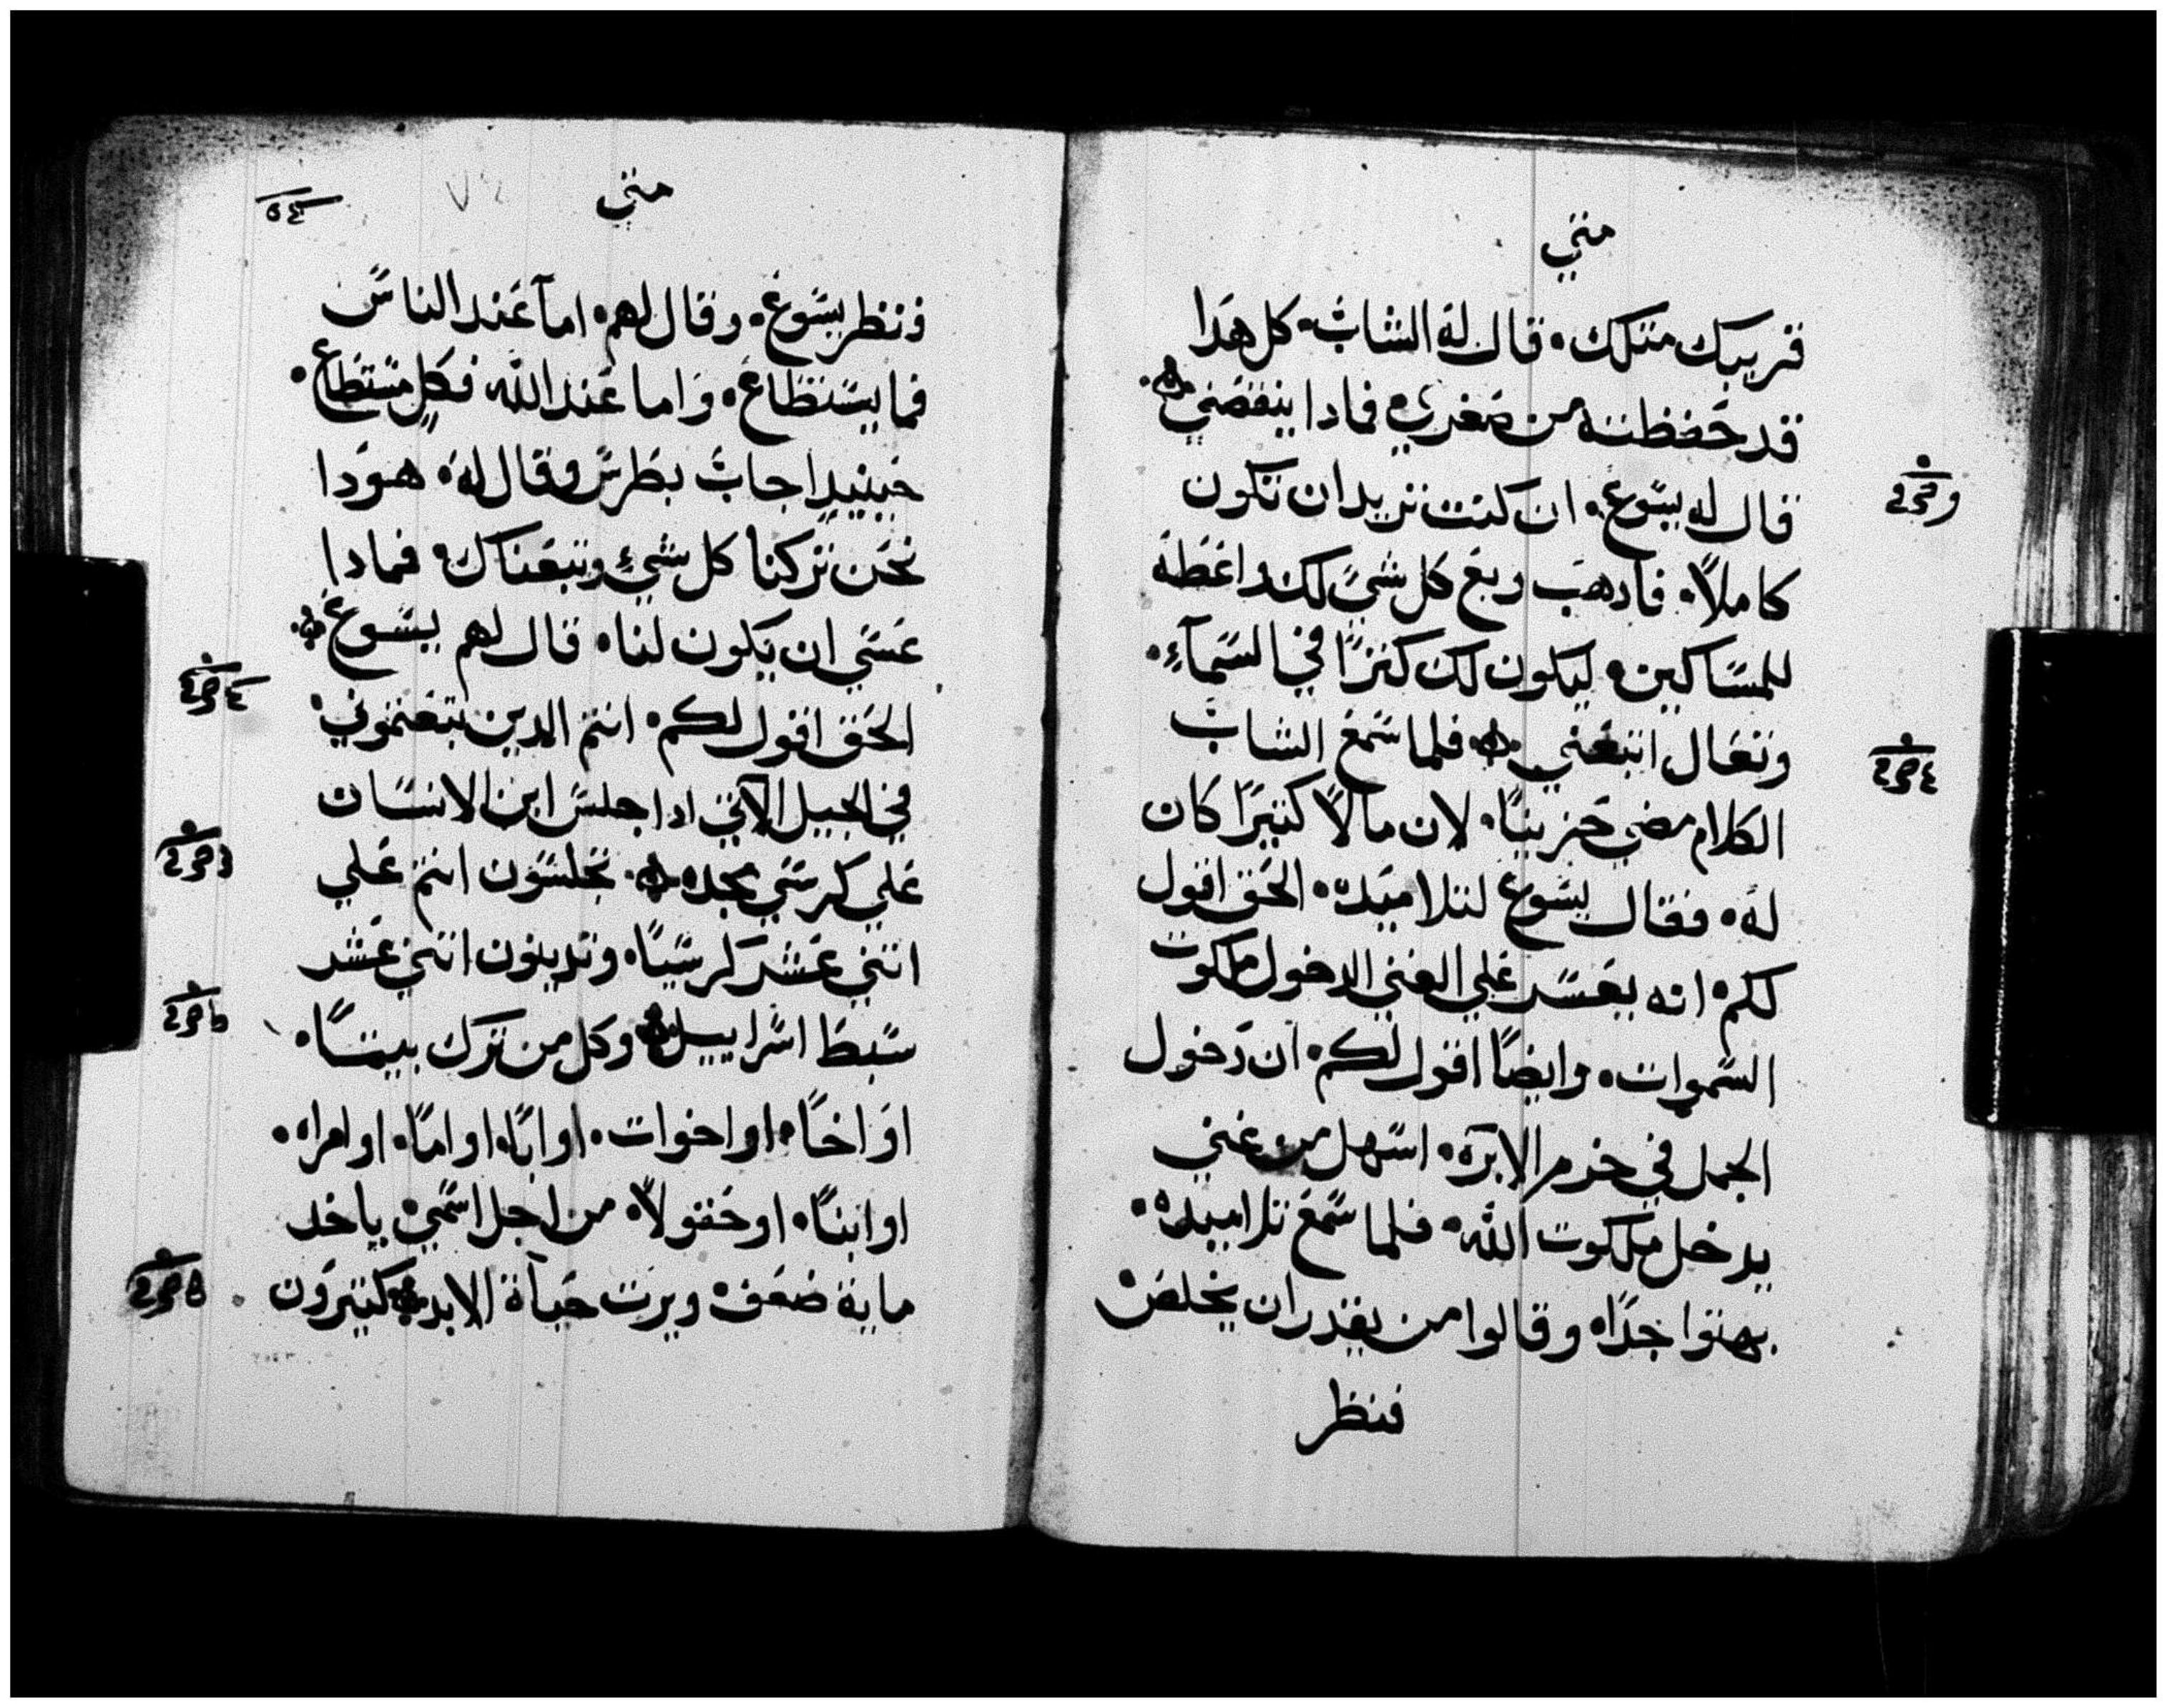 متي
قريبك متلك. قال له الشاب. كل هدا
قد حفظته من صغري فمادا ينقصني
قال له يسوع. ان كنت تريد ان تكون
كاملاً. فادهب وبع كل شيء لك واعطه
للمساكين. ليكون لك كنزًا في السمآءِ.
وتعال اتبعني. فلما سمع الشاب
الكلام مضي حزينًا. لان مالاً كتيرًا كان
له. فقال يسوع لتلاميده. الحق اقول
لكم. انه يعسر علي الغني الدخول ملكوت
السموات. وايضًا اقول لكم. ان دخول
الجمل في خرم الابرة. اسهل من غني
يدخل ملكوت الله. فلما سمع تلاميده.
بهتوا جدًا. وقالوا من يقدر ان يخلص
فنظر
متي
فنظر يسوع. وقال لهم. اما عند الناس
فما يستطاع. واما عند الله فكلٍ مستطاع.
حينيدٍ اجاب بطرس وقال له. هودا
نحن تركنا كل شيءٍ وتبعناك. فمادا
عسي ان يكون لنا. قال لهم يسوع
الحق اقول لكم. انتم الدين تبعتموني.
في الجيل الآتي ادا جلس ابن الانسان
علي كرسي مجده. تجلسون انتم علي
اتني عشر كرسيًا. وتدينون اتني عشر
سبط اسراييل وكل من ترك بيتًا.
او اخًا. او اخوات. او ابًا. او امًا. او امراه.
او ابنًا. او حقولاً. من اجل اسمي. ياخد
ماية ضعف. ويرت حيآة الابد كتيرون